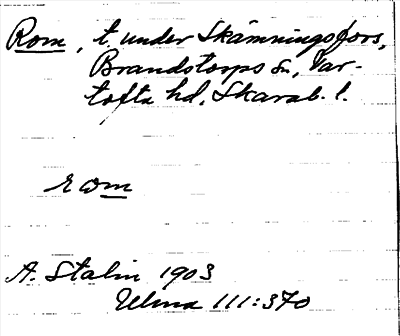 Rom, t. under Skämningsfors,
Brandstorps sn, Var-
tofta hd, Skarab. l.
rom
A. Stalin 1903
Ulma 111:370